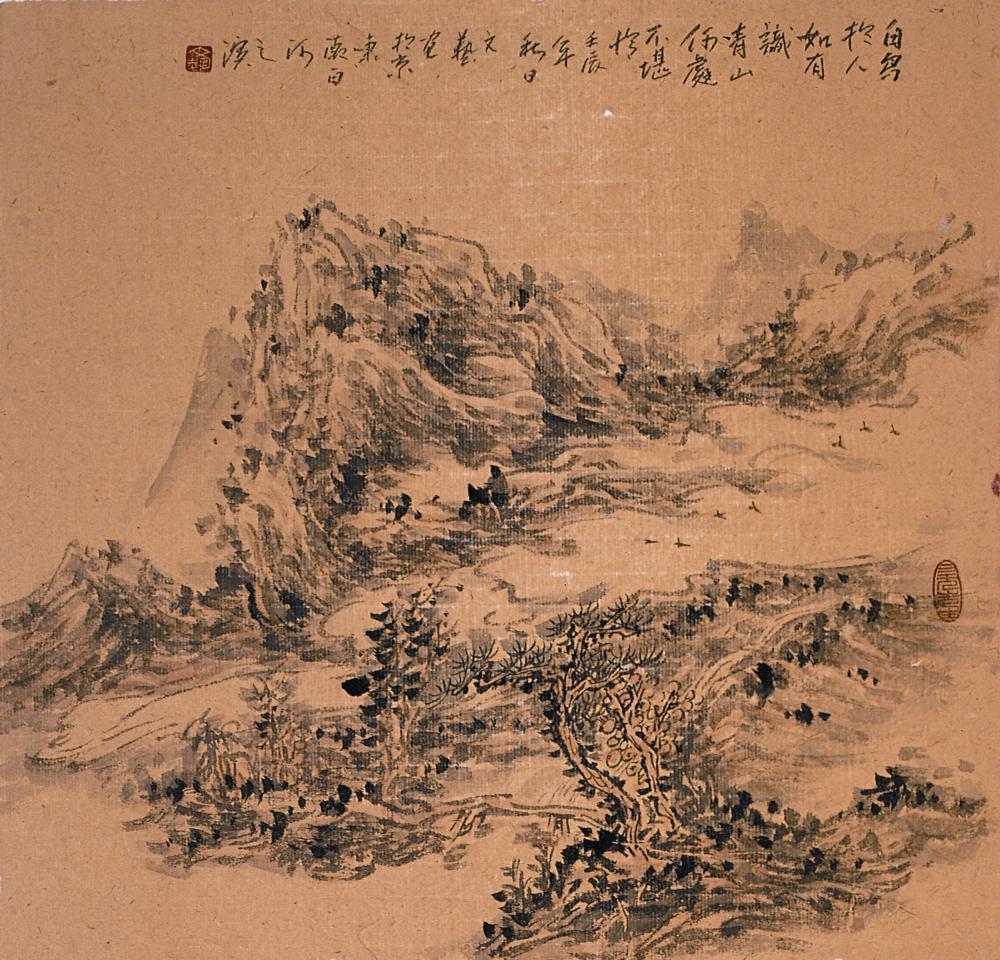 白鳥
於人
如有
識
青山
何處
不堪
憐
壬辰
年
秋日
文
藝
於京
東
南白
河
之
濱